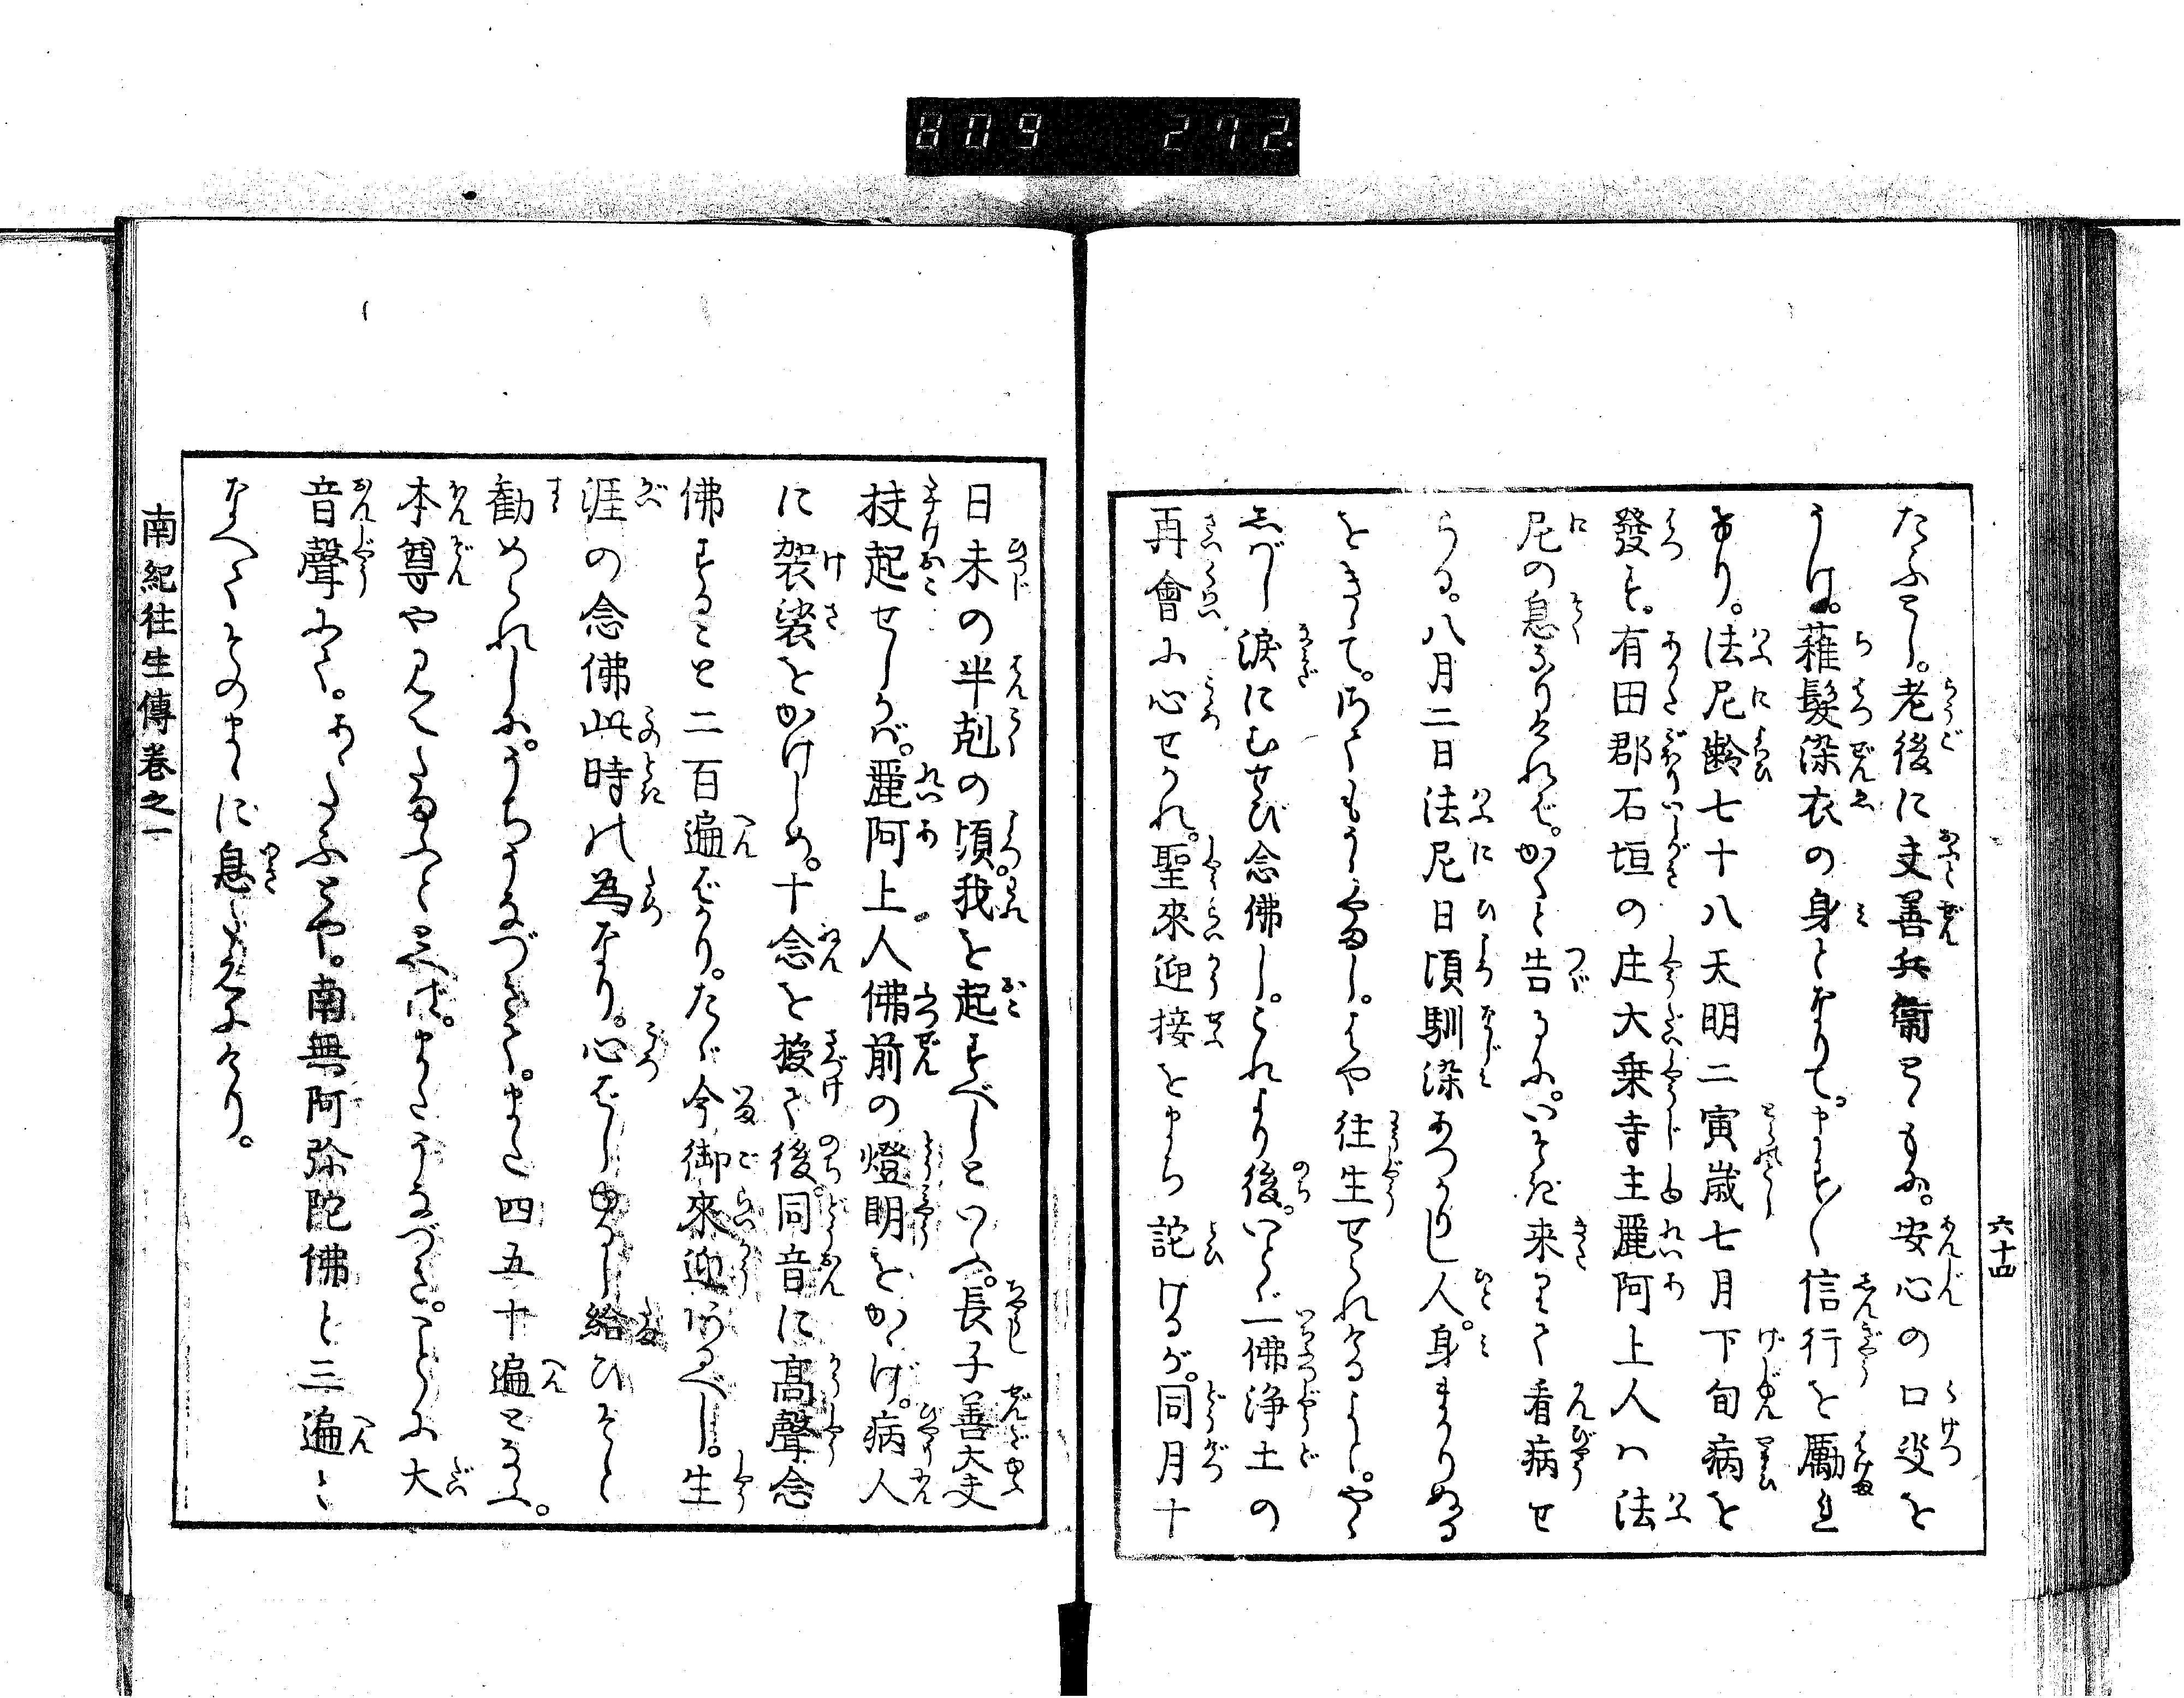 809 272.
六十四
たふとし。老後に夫善兵衞とゝもに。安心の口决を
うけ。薙髪染衣の身となりて。ます〳〵信行を勵れ
けり。法尼齢七十八天明二寅歳七月下旬病を
發す。有田郡石垣の庄大乗寺主麗阿上人ハ法
尼の息なりければ。かくと告るに。いそぎ来りて看病せ
らる。八月二日法尼日頃馴染あつかりし人。身まかりぬる
をきゝて。さてもうらやまし。はや往生せられけるよし。やゝ
しばし涙にむせび念佛し。これより後。いとゞ一佛浄土の
再會に心せかれ。聖來迎接をまち詫けるが。同月十
日未の半剋の頃。我を起すべしといふ。長子善大夫
扶起せしかば。麗阿上人佛前の燈明をかゝげ。病人
に袈裟をかけしめ。十念を授て後。同音に高聲念
佛すること二百遍ばかり。たゞ今御來迎あるべし。生
涯の念佛此時の為なり。心ばしゆるし給ひそと
勧められしに。うちうなづきて。また四五十遍となふ。
本尊や見へたまふと問へば。またうなづき。ことに大
音聲にて。あゝたふとや。南無阿弥陀佛と三遍と
なへてそのまゝに息たえにけり。
南紀往生傳卷之一